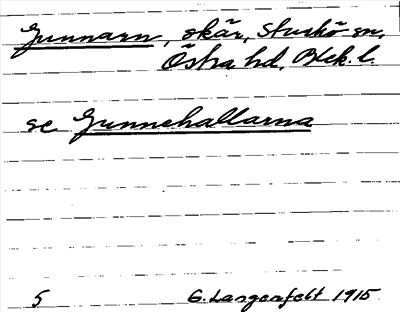 Gunnarn, skär, Sturkö sn,
Östra hd, Blek. l.
se Gunnehallarna
5 G. Langenfelt 1915